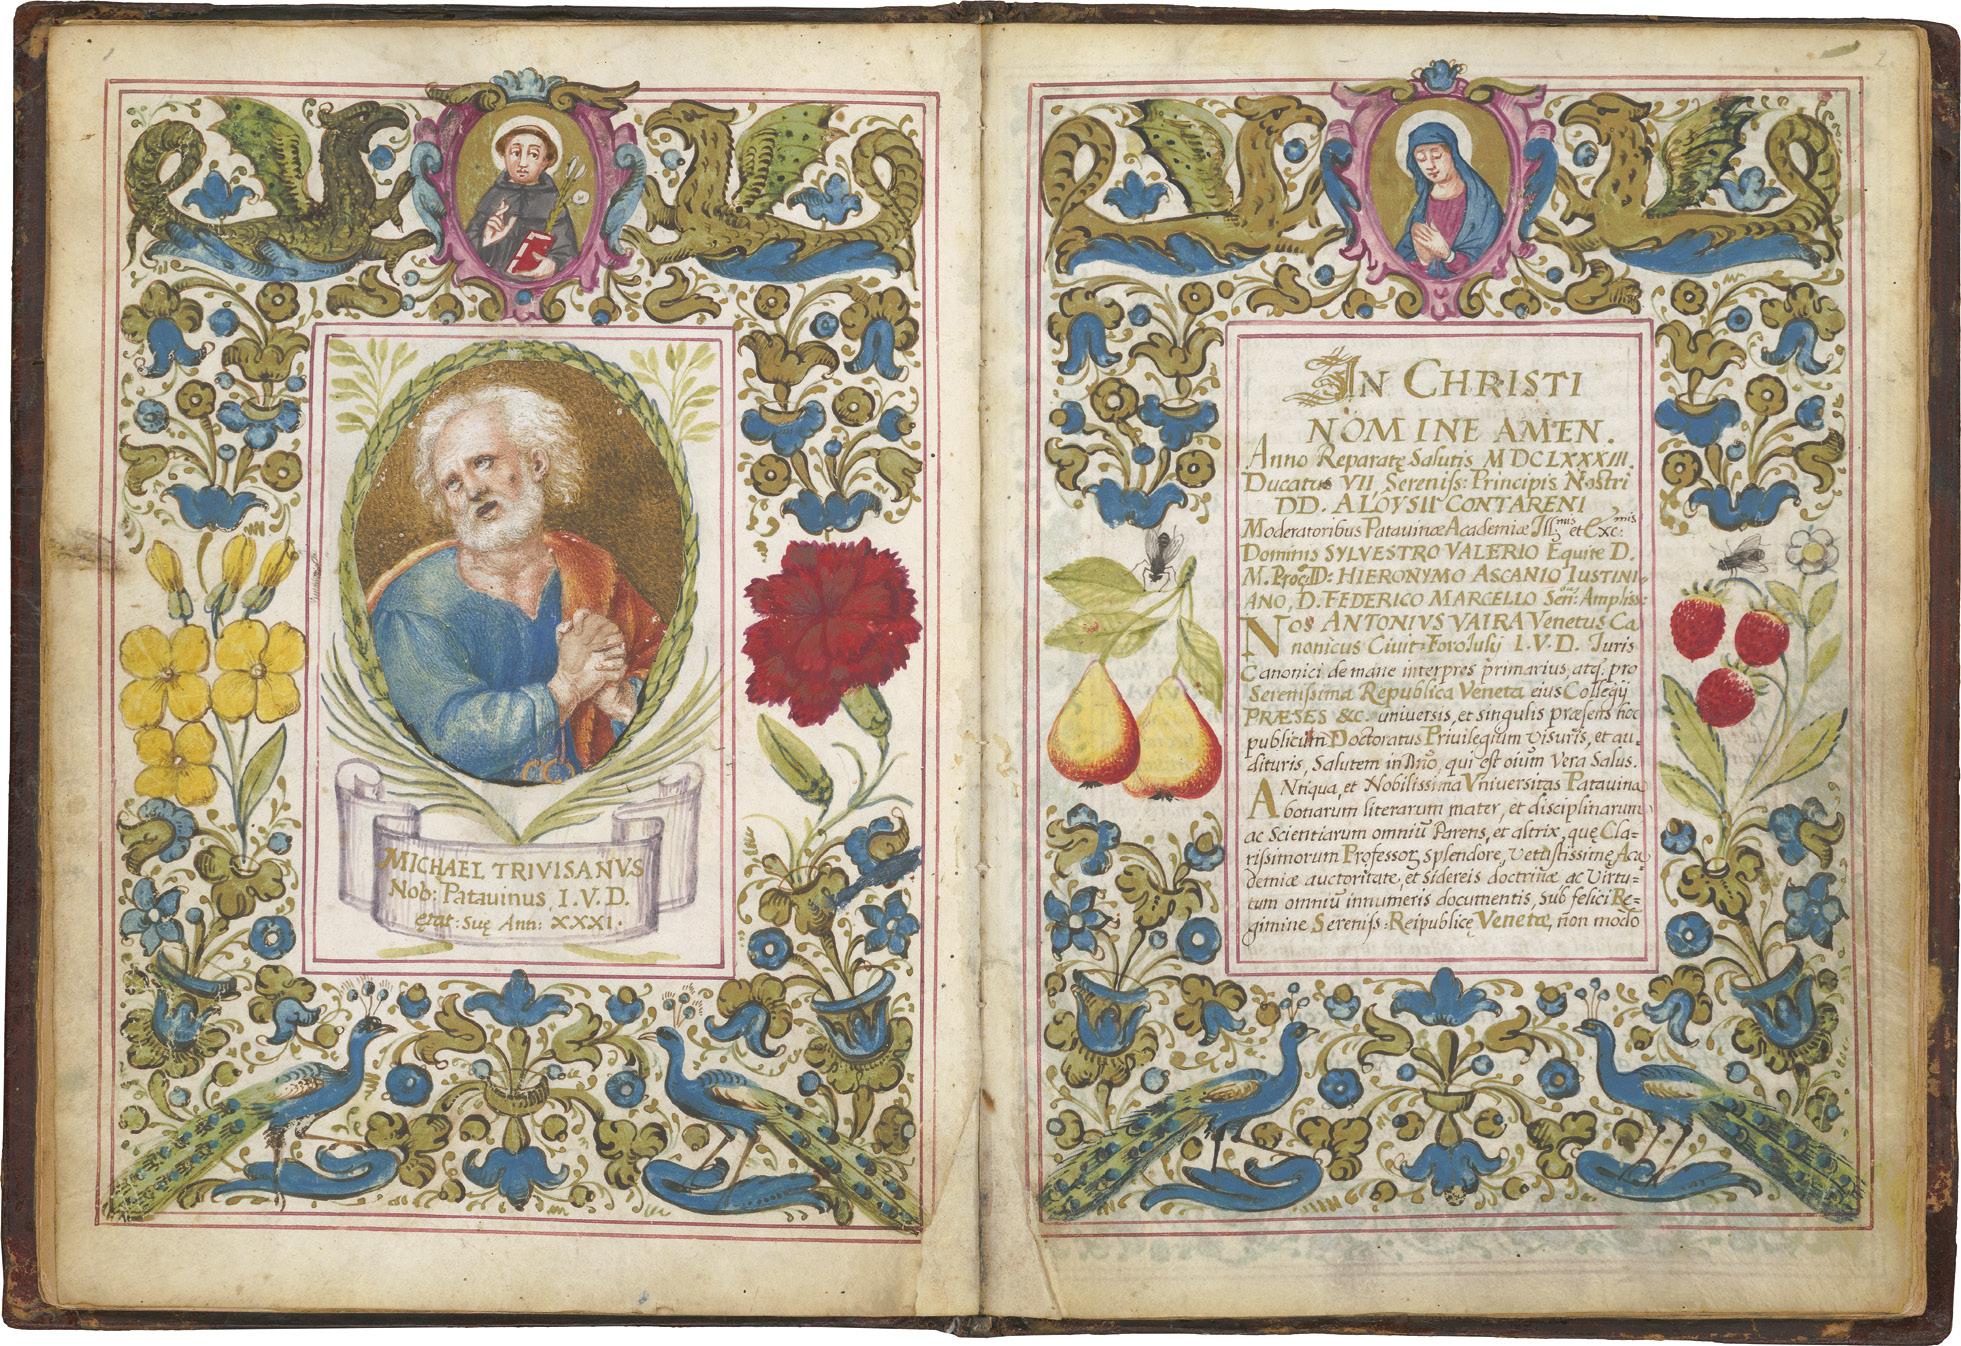 MICHAEL TRIVISANVS
Nob: Patauinus I. V. D.
ętat: Suę Ann: XXXI.
2
IN CHRISTI
NOMINE AMEN.
Anno Reparatę Salutis MDCLXXXIII.
Ducatus VII Sereniſs: Principis Nostri
DD. ALOYSII CONTARENI
Moderatoribus Patauinæ Academiæ Ill:mis et Exc:mis
Dominis SYLVESTRO VALERIO Equite D.
M. Proc: D: HIERONYMO ASCANIO IUSTINI-
ANO, D. FEDERICO MARCELLO Sen: Ampliss:
Nos ANTONIVS VAIRA Venetus Ca
nonicus Ciuit: ForoIulij I. V. D. Iuris
Canonici de mane interpres primarius, atq; pro
Serenissima Republica Veneta eius Collegij
PRÆSES &c. uniuersis, et singulis præsens hoc
publicum Doctoratus Priuilegium visuris, et au-
dituris, Salutem in Dño, qui est oium Vera Salus.
ANtiqua, et Nobilissima Vniuersitas Patauina
bonarum literarum mater, et disciplinarum
ac Scientiarum omniū Parens, et altrix, quę Cla=
rissimorum Professoꝝ splendore, vetustissimę Aca
demiæ auctoritate, et sidereis doctrinæ ac Virtu=
tum omniū innumeris documentis, sub felici Re=
gimine Sereniſs: Reipublicę Venetæ, non modo